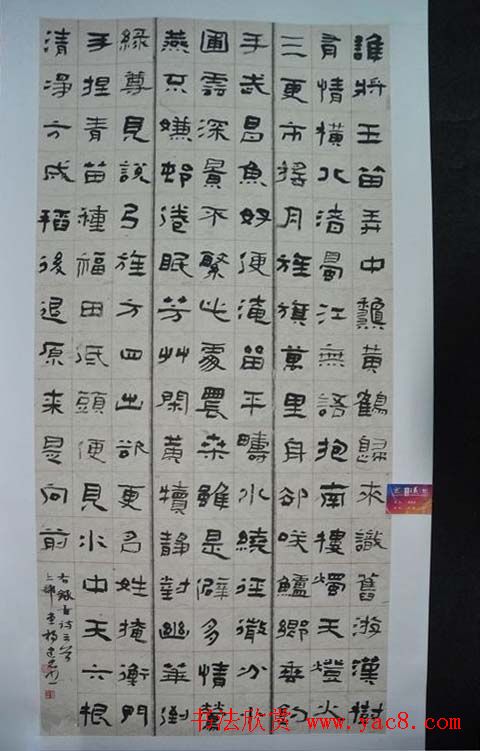 誰將玉笛弄中龝黃鶴歸來識舊游漢樹
有情橫北渚蜀江無語抱南樓燭天燈火
三更市搖月旌旗萬里舟卻咲鱸鄉垂釣
手武昌魚好便淹畱平疇水繞徑微分小
圃雲深景不繁此處農桑雖是僻多情鶯
燕不嫌邨倦眠芳艸閑黃犢靜對幽華倒
綠尊見說弓旌方四出欲更名姓掩衡門
手捏青苗種福田低頭便見水中天六根
清淨方成稻後退原來是向前
右錄古詩三首
书法欣赏 www.yac8.com